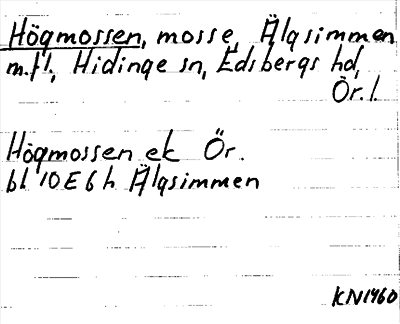 Högmossen, mosse, Älgsimmen
m.fl., Hidinge sn, Edsbergs hd,
Ör. l.
Högmossen ek Ör.
bl 10E6h Älgsimmen
KN1960